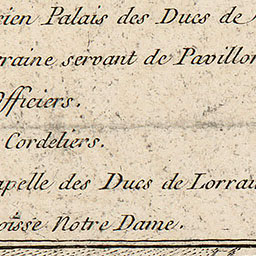 cien Palais des Ducs de
rraine servant de Pavillon
Officiers.
Cordeliers.
apelle des Ducs de Lorrai
oisse Notre Dame.